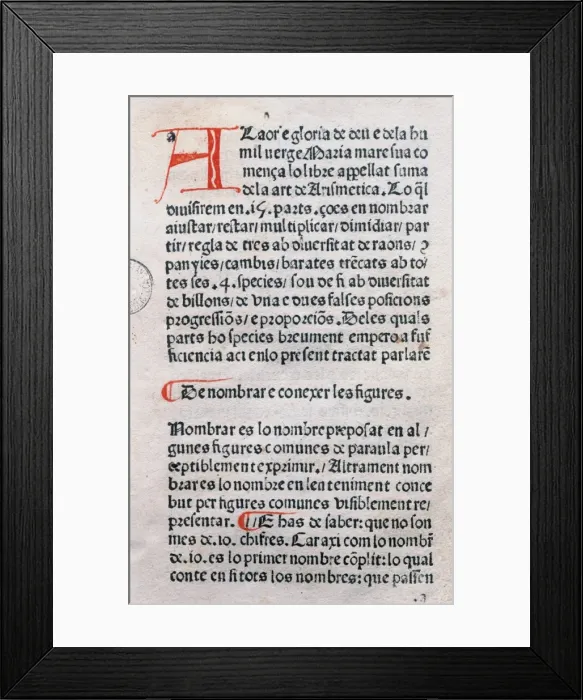 A Laor e gloria de deu e dela hu
mil uerge Maria mare sua co
mença lo libre appellat suma
dela art de Arismetica. Lo q̃l
diuisirem en .15. parts. ço es en nombrar
aiustar/restar/multiplicar/dimidiar/par
tir/regla de tres ab diuersitat de raons/ ꝯ
panyies/cambis/barates trẽcats ab to/
tes ses .4. species/ sou de fi ab diuersitat
de billons/de vna e dues falses posicions
progressiõs/e proporciõs. Deles quals
parts ho species breument empero a suf
ficiencia aci enlo present tractat parlarẽ
De nombrar e conexer les figures.
Nombrar es lo nombre preposat en al/
gunes figures comunes de paraula per/
ceptiblement exprimir./Altrament nom
brar es lo nombre en len teniment conce
but per figures comunes visiblement re/
presentar. /E has de saber: que no son
mes de .10. chifres. Car axi com lo nombr̃
de .10. es lo primer nombre cõplit: lo qual
conte en si tots los nombres: que passen